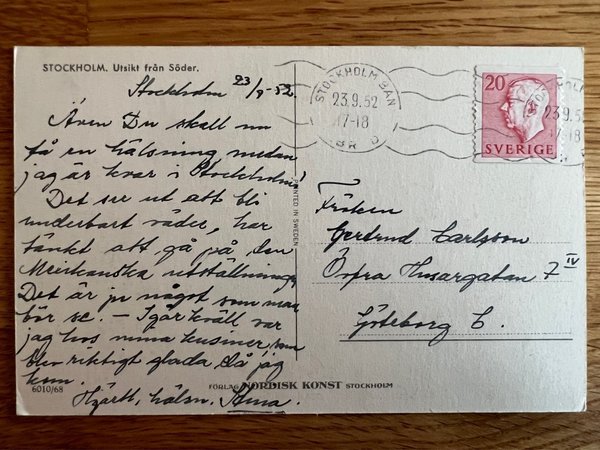 STOCKHOLM. Utsikt från Söder.
Stockholm 23/9-52
Även Du skall nu
få en hälsning medan
jag är kvar i Stockholm!
Det ser ut att bli
underbart väder, har
tänkt att gå på den
Mexikanska utställningen
Det är ju något som man
bör se. – Igår kväll var
jag hos mina kusiner som
blev riktigt glada då jag
kom.
Hjärtl. hälsn. Anna.
6010/68
PRINTED IN SWEDEN
FÖRLAG NORDISK KONST STOCKHOLM
STOCKHOLM BAN
23.9.52
17-18
BR
20
SVERIGE
23.9.52
17-18
Fröken
Gertrud Carlsson
Övra Husargatan 7 IV
Göteborg C.